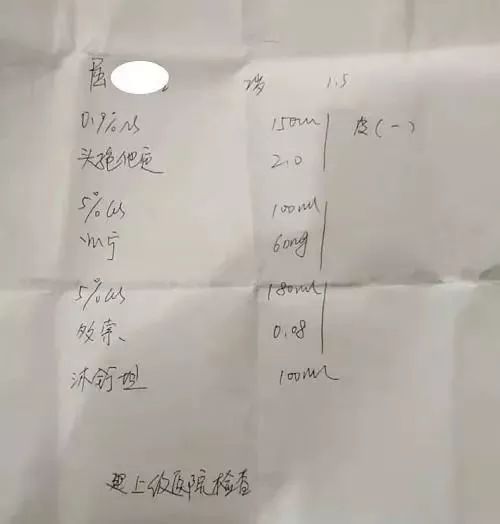 屈 岁 1.5
0.9%NS 150ml 皮(一)
头孢他定 2.0
5%GS 100ml
宁 60mg
5%GS 180ml
0.08
沐舒坦 100ml
上级医院检查